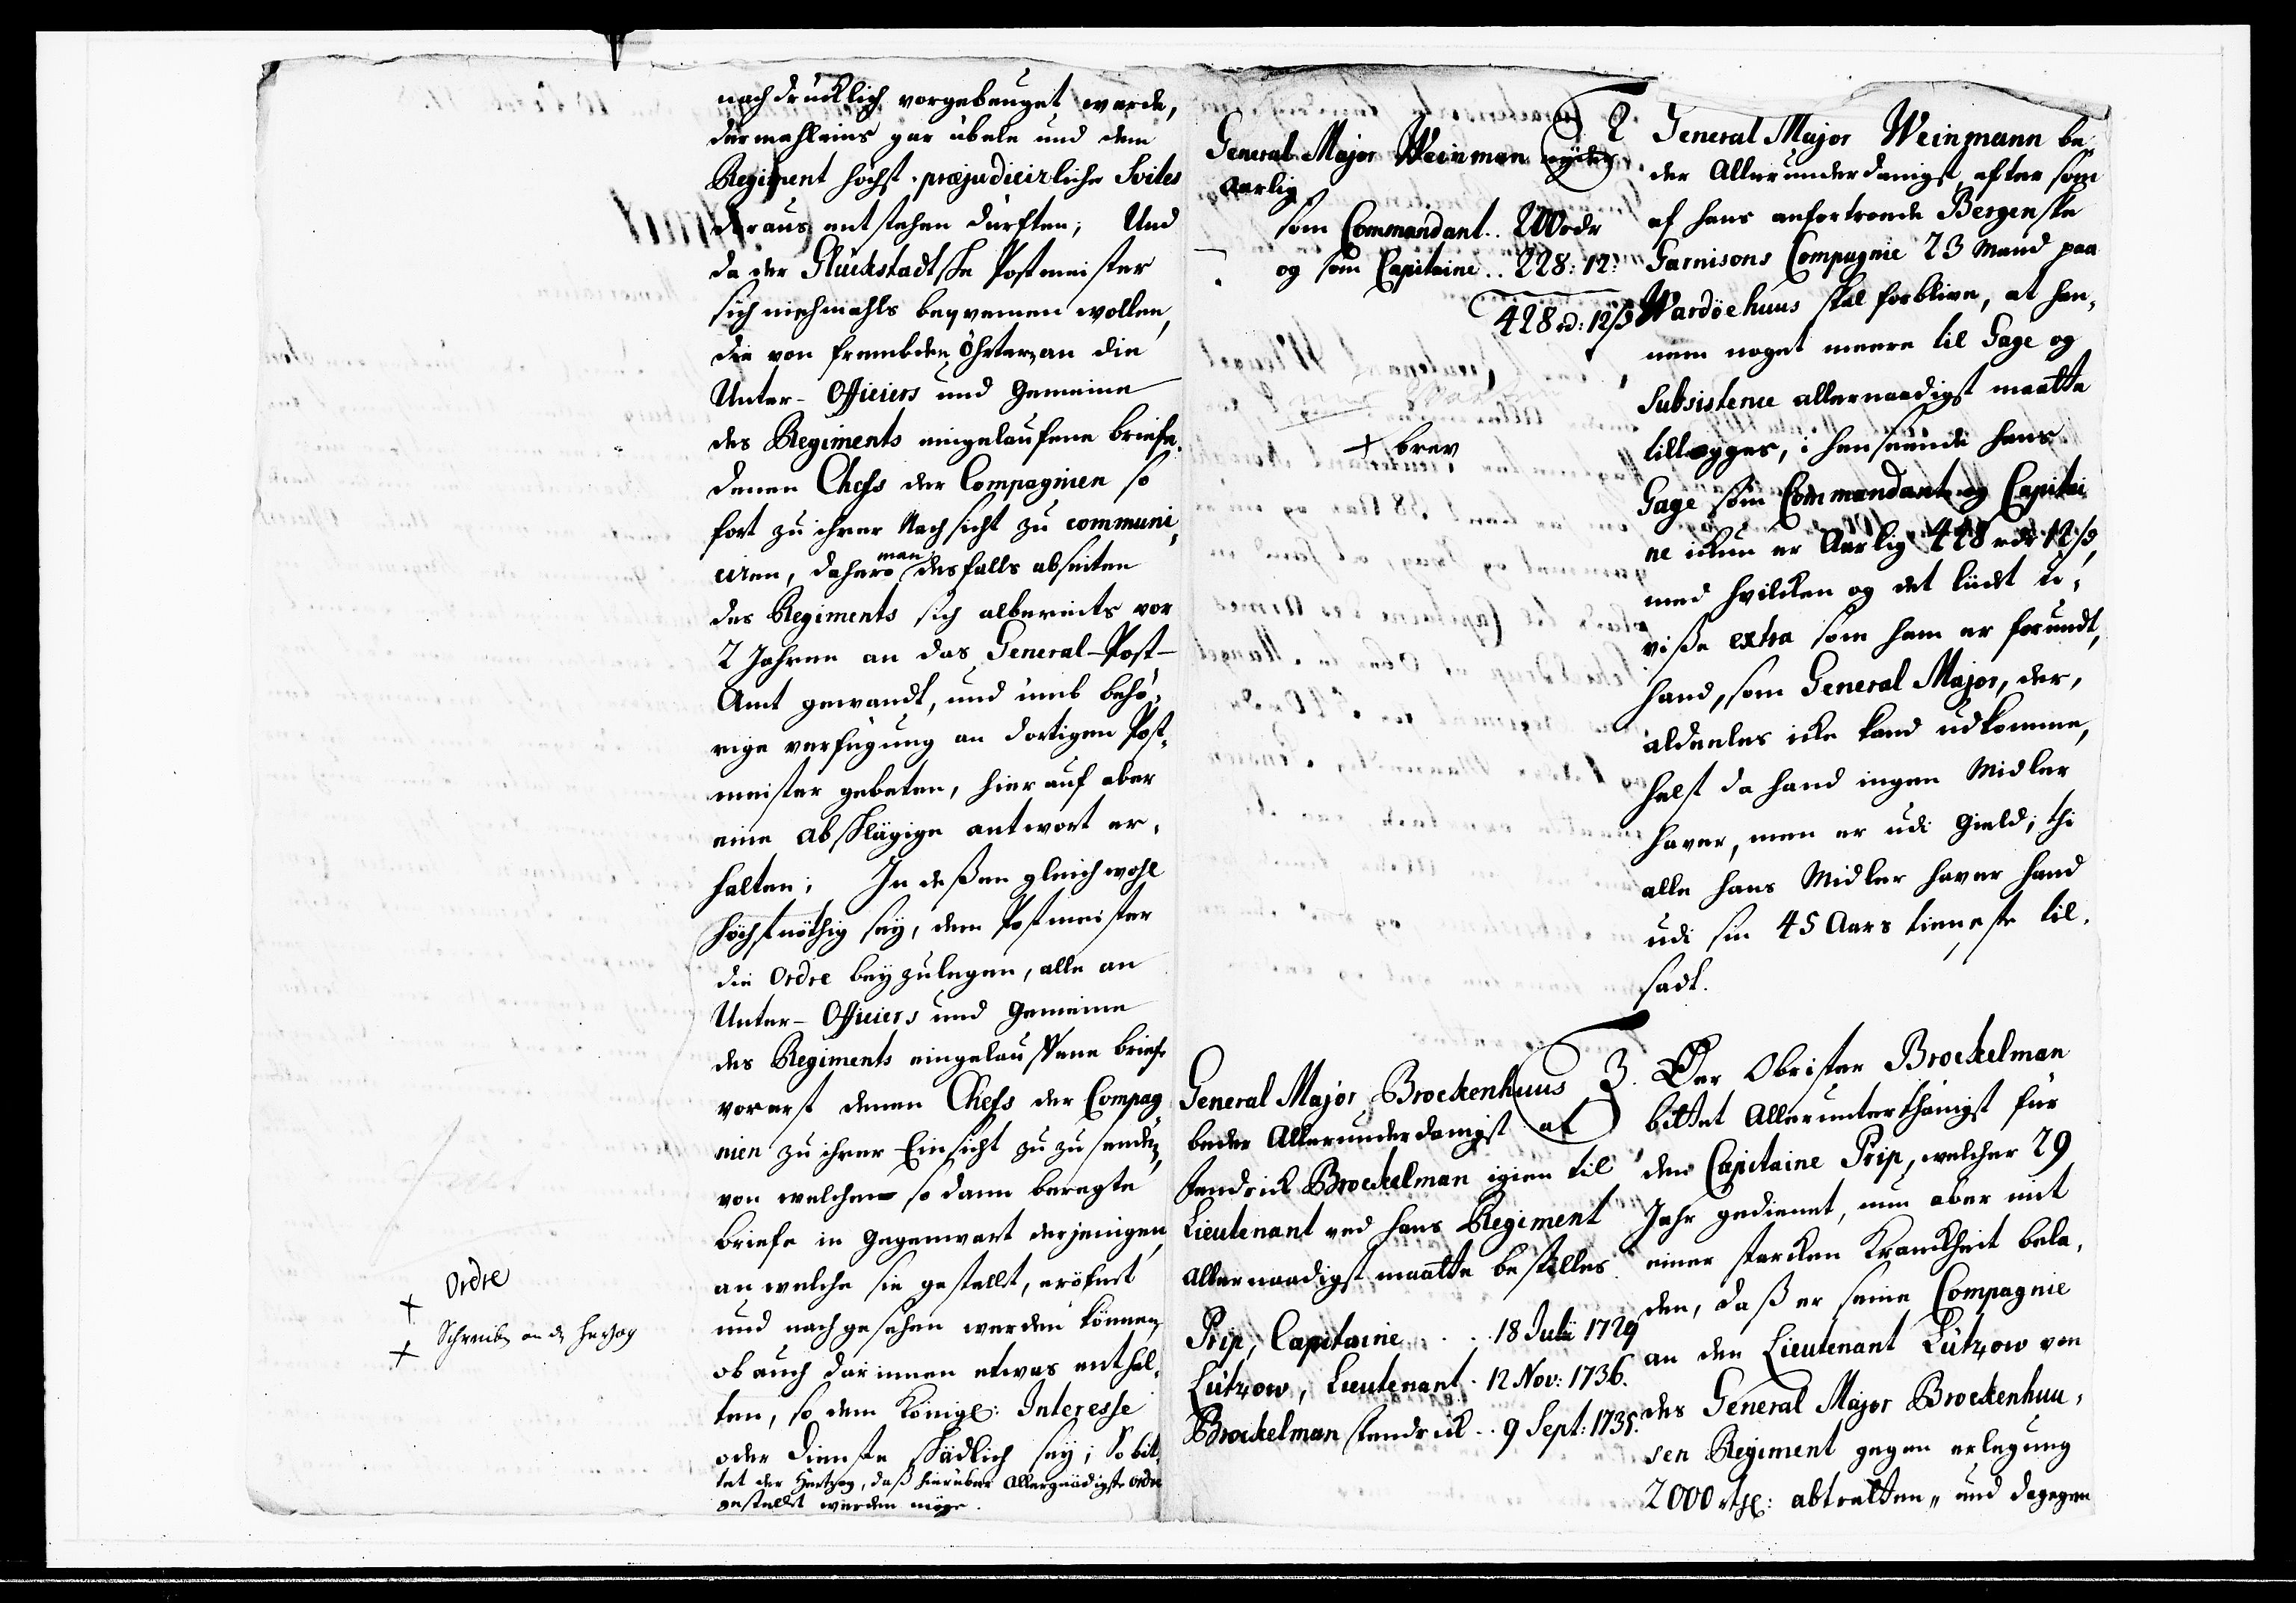 nachdrücklich vorgebeuget werde,
dermahleins gar übele und dem
Regiment höchst præjudicirliche Svites
daraus entstehen dürften; Und
da der Glückstadtsche Postmeister
sich niehmahls beqvemen wollen,
die von frembden Öhrtern an die
Unter-Officiers und Gemeine
des Regiments eingelaufene briefe
denen Chefs der Compagnien so
fort zu ihrer Nachsicht zu communi,
ciren, dahero man desfalls abseiten
des Regiments sich albereits vor
2 Jahren an das General-Post-
Amt gewandt, und umb behö,
rige verfügung an dortigen Post,
meister gebeten, hierauf aber
eine abschlägige antwort er,
halten; In deßen gleichwohl
höchstnöthig sey, dem Postmeister
die Ordre beyzulegen, alle an
Unter-Officiers und Gemeine
des Regiments eingelauffene briefe
vorerst denen Chefs der Compag
nien zu ihrer Einsicht zu zu senden,
von welchen so dann beregte
briefe in Gegenwart derjenigen
an welche sie gestellt, eröfnet
und nachgesehen werden können,
ob auch darinnen etwas enthal,
ten, so dem Königl: Interesse
oder Dienste schädlich sey; So bit,
tet der Hertzog, daß hierüber Allergnädigste Ordre
gestellet werden möge.
+ Ordre
+ Schreiben an den Herzog
General Major Weinman
Aarlig
som Commandant .. 200 rdr
og som Capitaine .. 228: 12:
428 rd: 12 ß
+ brev
2 General Major Weinmann be,
der Allerunderdanigst, efter som
af hans anfortroede Bergenske
Garnisons Compagnie 23 Mand paa
Wardöehuus skal forblive, at han,
nem noget meere til Gage og
Subsistence allernaadigst maatte
tillægges, i henseende hans
Gage som Commandant og Capitai
ne ickun er Aarlig 428 rdr 12 ß,
med hvilcken og det liidt u,
visse extra som ham er forundt,
hand, som General Major, der,
aldeeles icke kand udkomme,
helst da hand ingen Midler
haver, men er udi Gield; thi
alle hans Midler haver hand
udi sin 45 Aars tieneste til,
sadt.
General Major Brockenhuus
beder Allerunderdanigst at
Fendrick Brockelman igien til
Lieutenant ved hans Regiment
Allernaadigst maatte bestilles
Prip, Capitaine . . . 18 Julii 1729
Lützow, Lieutenant . 12 Nov: 1736.
Brockelman fendrick .. 9 Sept: 1735.
3. Der Obrister Brockelman
bittet Allerunterthänigst für
den Capitaine Prip, welcher 29
Jahr gedienet, nun aber mit
einer starcken Kranckheit bela,
den, daß er seine Compagnie
an den Lieutenant Lützow von
des General Major Brockenhuu,
sen Regiment gegen erlegung
2000 rthl: abtretten, und dagegen